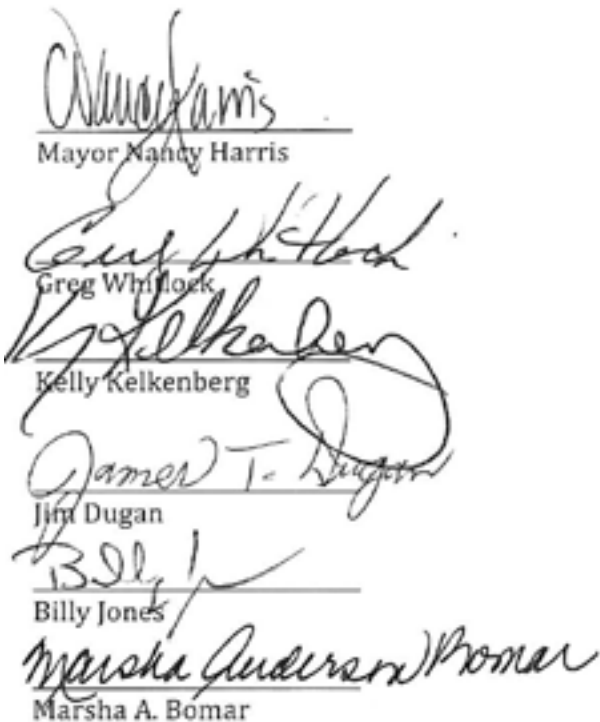 Nancy Harris
Mayor Nancy Harris
Greg Whitlock
Greg Whitlock
Kelkenberg
Kelly Kelkenberg
James T. Dugan
Jim Dugan
Billy J
Billy Jones
Marsha Anderson Bomar
Marsha A. Bomar